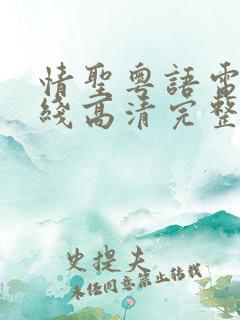 情聖粵語電
綫高清完整
史提夫
未经同意禁止转载